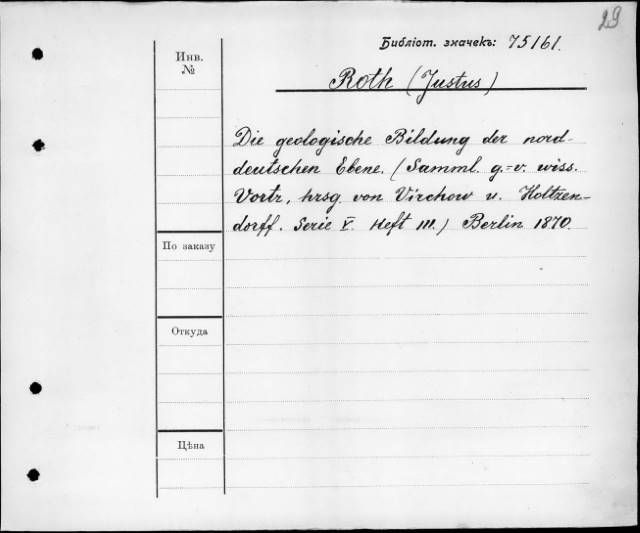 29
Библіот. значекъ: 75161.
Инв.
№
Roth (Justus)
Die geologische Bildung der nord-
deutschen Ebene. (Samml. g.-v. wiss.
Vortr, hrsg. von Virchow u. Holtzen-
dorff. Serie V. Heft 111.) Berlin 1870.
По заказу
Откуда
Цѣна